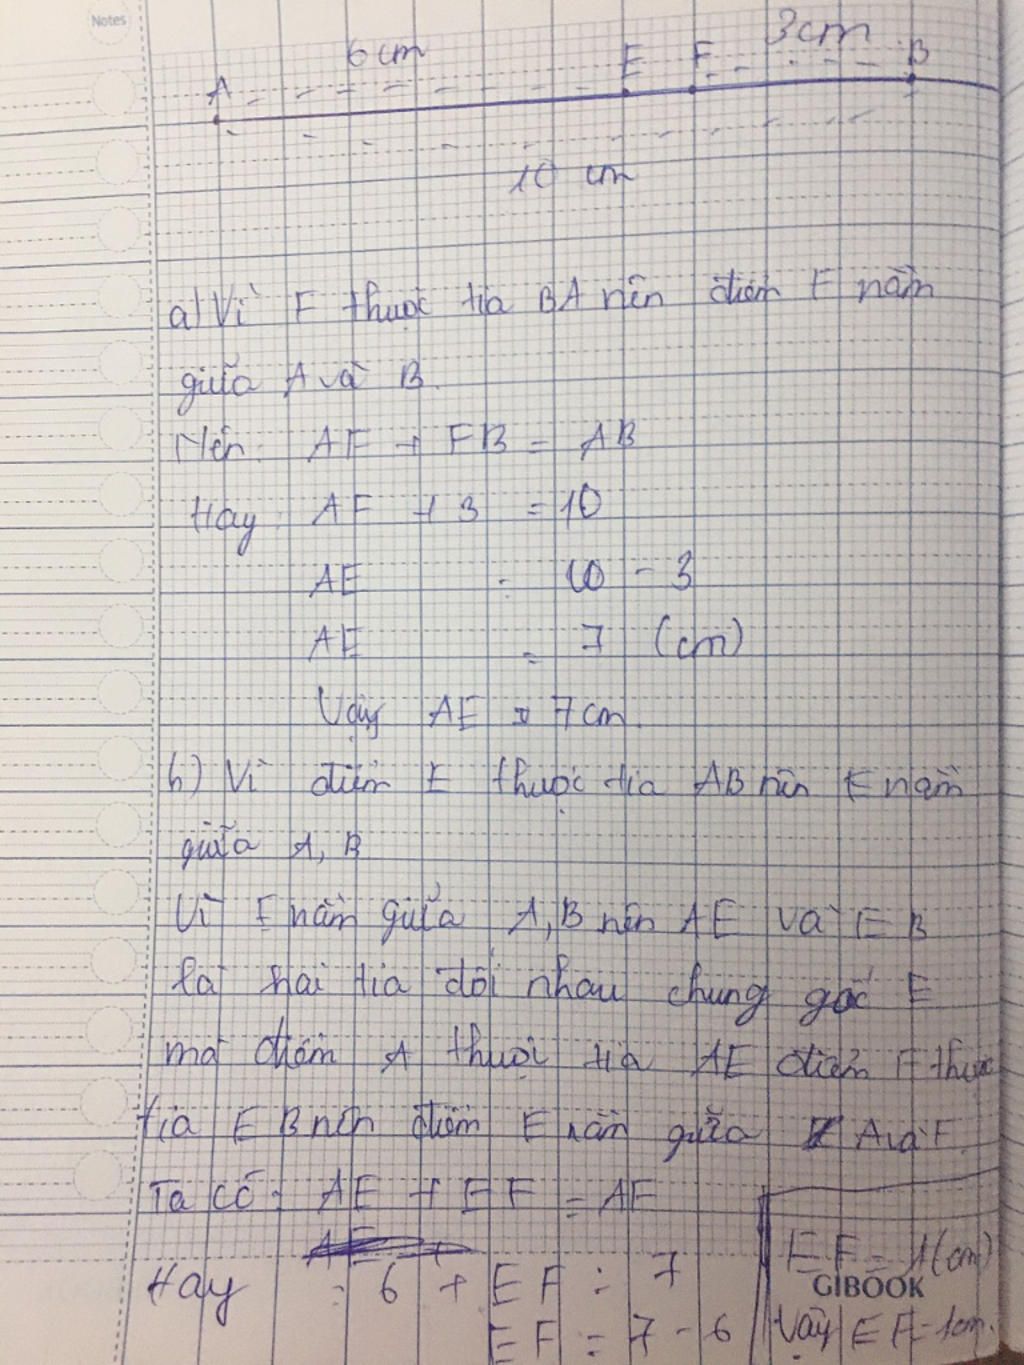 Notes
6cm
3cm
A E F B
10 cm
a) Vì F thuộc tia BA nên điểm F nằm
giữa A và B.
Nên: AF + FB = AB
Hay: AF + 3 = 10
AE = 10 - 3
AE = 7 (cm)
Vậy AE = 7cm.
b) Vì điểm E thuộc tia AB nên E nằm
giữa A, B
Vì E nằm giữa A, B nên AE và EB
là hai tia đối nhau chung gốc E
mà điểm A thuộc tia AE điểm F thuộc
tia EB nên điểm E nằm giữa A và F
Ta có: AE + EF = AF
Hay : 6 + EF = 7
EF = 7 - 6
EF = 1(cm)
GIBOOK
Vậy EF = 1cm.